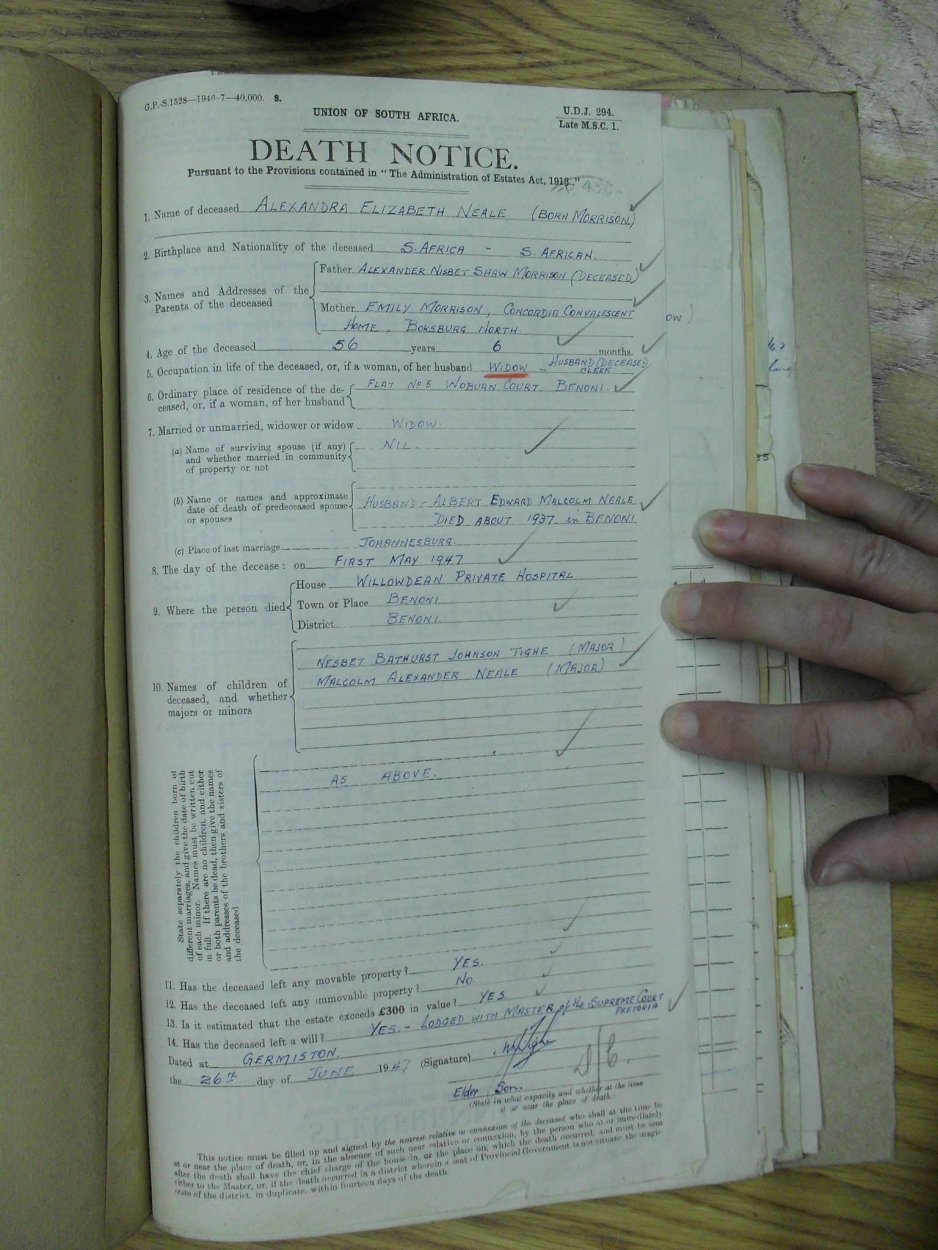 G.P.-S.1528—1946-7—40,000. S.
UNION OF SOUTH AFRICA.
U.D.J. 294.
Late M.S.C. 1.
DEATH NOTICE.
Pursuant to the Provisions contained in "The Administration of Estates Act, 1913."
1. Name of deceased ALEXANDRA ELIZABETH NEALE (BORN MORRISON)
2. Birthplace and Nationality of the deceased S. AFRICA - S. AFRICAN.
3. Names and Addresses of the Parents of the deceased
Father ALEXANDER NISBET SHAW MORRISON (DECEASED)
Mother EMILY MORRISON, CONCORDIA CONVALESCENT
HOME, BOKSBURG NORTH.
4. Age of the deceased 56 years 6 months.
5. Occupation in life of the deceased, or, if a woman, of her husband WIDOW - HUSBAND (DECEASED) CLERK
6. Ordinary place of residence of the de-
ceased, or, if a woman, of her husband
FLAT No 8 WOBURN COURT, BENONI.
7. Married or unmarried, widower or widow WIDOW.
(a) Name of surviving spouse (if any)
and whether married in community
of property or not
NIL.
(b) Name or names and approximate
date of death of predeceased spouse
or spouses
HUSBAND - ALBERT EDWARD MALCOLM NEALE
DIED ABOUT 1937. in BENONI
(c) Place of last marriage JOHANNESBURG.
8. The day of the decease: on FIRST MAY 1947
9. Where the person died
House WILLOWDEAN PRIVATE HOSPITAL
Town or Place BENONI
District BENONI.
10. Names of children of
deceased, and whether
majors or minors
NESBET BATHURST JOHNSON TIGHE (MAJOR)
MALCOLM ALEXANDER NEALE (MAJOR)
State separately the children born of
different marriages, and give the date of birth
of each minor. Names must be written out
in full. If there are no children, and either
or both parents be dead, then give the names
and addresses of the brothers and sisters of
the deceased
AS ABOVE.
11. Has the deceased left any movable property? YES.
12. Has the deceased left any immovable property? No.
13. Is it estimated that the estate exceeds £300 in value? YES
14. Has the deceased left a will? YES. - LODGED WITH MASTER of the SUPREME COURT
PRETORIA
Dated at GERMISTON.
the 26th day of JUNE 1947 (Signature)
Elder Son.
(State in what capacity and whether at the time
it or near the place of death.)
This notice must be filled up and signed by the nearest relative or connexion of the deceased who shall at the time be
at or near the place of death, or, in the absence of such near relative or connexion, by the person who at or immediately
after the death shall have the chief charge of the house in, or the place on, which the death occurred, and must be sent
either to the Master, or, if the death occurred in a district wherein a seat of Provincial Government is not situate the magis-
trate of the district, in duplicate, within fourteen days of the death